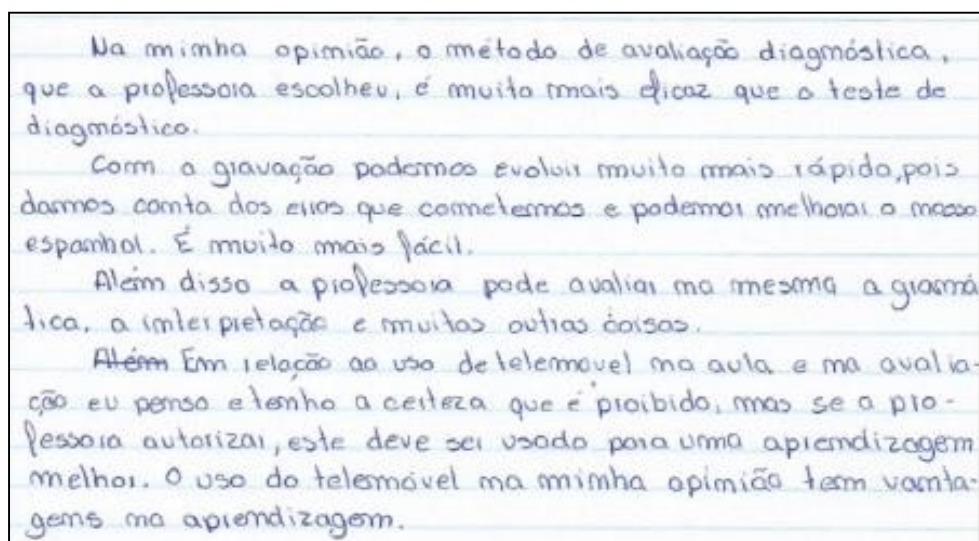 Na minha opinião, o método de avaliação diagnóstica,
que a professora escolheu, é muito mais eficaz que o teste de
diagnóstico.
Com a gravação podemos evoluir muito mais rápido, pois
damos conta dos erros que cometemos e podemos melhorar o nosso
espanhol. É muito mais fácil.
Além disso a professora pode avaliar na mesma a gramá
tica, a interpretação e muitas outras coisas.
Além Em relação ao uso de telemovel na aula e na avalia-
ção eu penso e tenho a certeza que é proibido, mas se a pro-
fessora autorizar, este deve ser usado para uma aprendizagem
melhor. O uso do telemóvel na minha opinião tem vanta-
gens na aprendizagem.